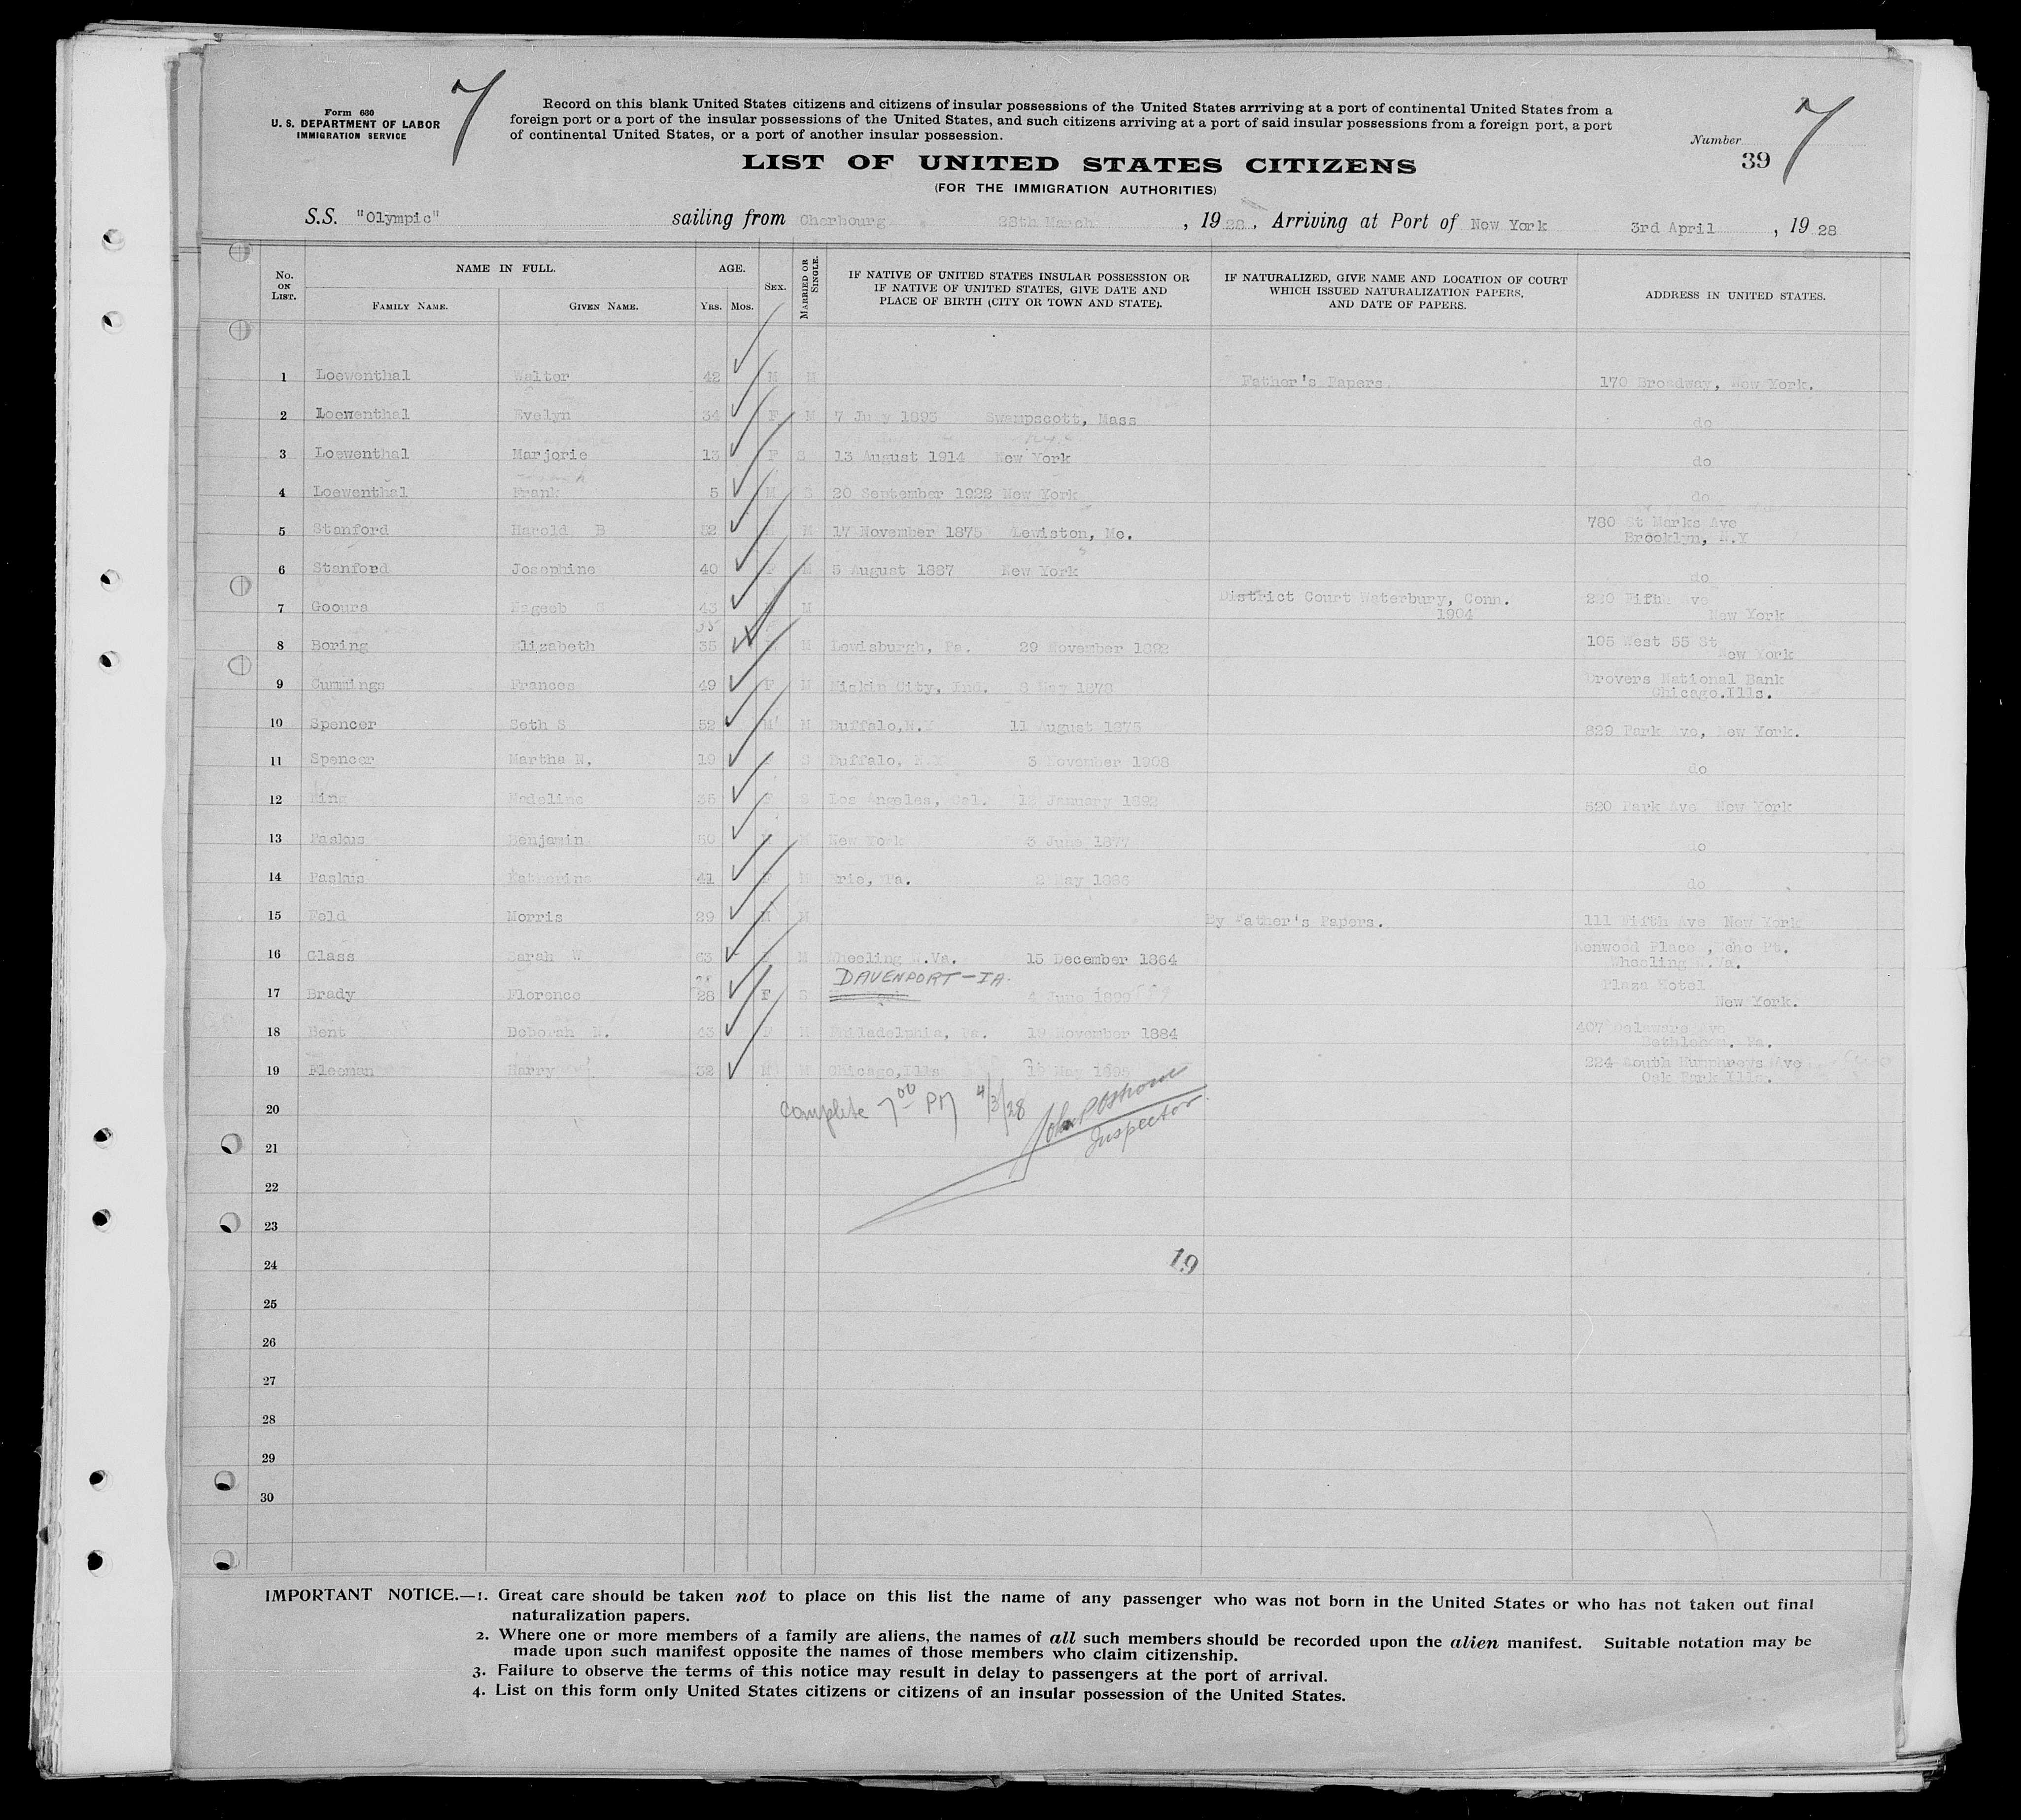 Form 630
U. S. DEPARTMENT OF LABOR
IMMIGRATION SERVICE
7
Record on this blank United States citizens and citizens of insular possessions of the United States arrriving at a port of continental United States from a
foreign port or a port of the insular possessions of the United States, and such citizens arriving at a port of said insular possessions from a foreign port, a port
of continental United States, or a port of another insular possession.
Number
39
7
LIST OF UNITED STATES CITIZENS
(FOR THE IMMIGRATION AUTHORITIES)
S.S. "Olympic" sailing from Cherbourg 28th March, 1928. Arriving at Port of New York 3rd April, 1928
No. ON LIST. NAME IN FULL. AGE. SEX. MARRIED OR SINGLE. IF NATIVE OF UNITED STATES INSULAR POSSESSION OR IF NATIVE OF UNITED STATES, GIVE DATE AND PLACE OF BIRTH (CITY OR TOWN AND STATE). IF NATURALIZED, GIVE NAME AND LOCATION OF COURT WHICH ISSUED NATURALIZATION PAPERS, AND DATE OF PAPERS. ADDRESS IN UNITED STATES.
FAMILY NAME. GIVEN NAME. YRS. MOS.
1 Loewenthal Walter 42 M M Father's Papers. 170 Broadway, New York.
2 Loewenthal Evelyn 34 F M 7 July 1893 Swampscott, Mass do
3 Loewenthal Marjorie 13 F S 13 August 1914 New York do
4 Loewenthal Frank 5 M S 20 September 1922 New York do
5 Stanford Harold B 52 M 17 November 1875 Lewiston, Me. 780 St Marks Ave
Brooklyn, N.Y
6 Stanford Josephine 40 F M 5 August 1887 New York do
7 Gooura Nageeb S 43 M District Court Waterbury, Conn. 1904 Fifth Ave
New York
8 Boring Elizabeth 35 M Lewisburgh, Pa. 29 November 1892 105 West 55 St
New York
9 Cummings Frances 49 F M City, Ind. 8 May 1878 Drovers National Bank
Chicago.Ills.
10 Spencer Seth S 52 M M Buffalo,N.Y 11 August 1875 829 Park Ave, New York.
11 Spencer Martha N. 19 S Buffalo, N.Y 3 November 1908 do
12 King Madeline 36 S Los Angeles, Cal. 12 January 1892 520 Park Ave New York
13 Paskus Benjamin 50 M New York 3 June 1877 do
14 Paskus Katherine 41 F M Erie, Pa. 2 May 1886 do
15 Feld Morris 29 M M By Father's Papers. 111 Fifth Ave New York
16 Glass Sarah W 63 M Wheeling W.Va. 15 December 1864 Kenwood Place, Echo Pt.
Wheeling W.Va.
DAVENPORT-IA.
17 Brady Florence 28 F S 4 June 1899 Plaza Hotel
New York.
18 Bent Deborah N. 43 F M Philadelphia, Pa. 19 November 1884 407 Delaware Ave
Bethlehem. Pa.
19 Fleeman Harry 32 M M Chicago,Ills May 224 South Humphreys Ave
Oak Park Ills.
20
Complete 7 00 PM 4/3/28 John P Osborne
Inspector
21
22
23
24
19
25
26
27
28
29
30
IMPORTANT NOTICE.—1. Great care should be taken not to place on this list the name of any passenger who was not born in the United States or who has not taken out final
naturalization papers.
2. Where one or more members of a family are aliens, the names of all such members should be recorded upon the alien manifest. Suitable notation may be
made upon such manifest opposite the names of those members who claim citizenship.
3. Failure to observe the terms of this notice may result in delay to passengers at the port of arrival.
4. List on this form only United States citizens or citizens of an insular possession of the United States.